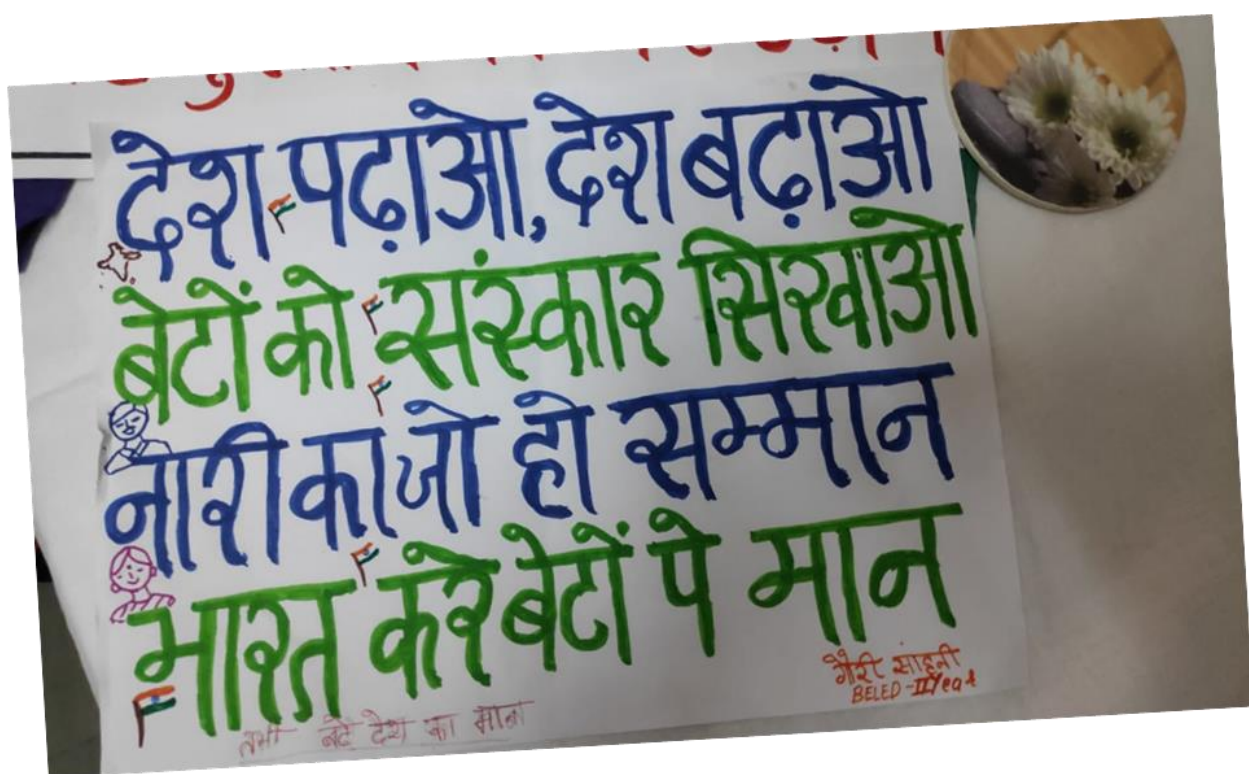 देश पढ़ाओ, देश बढ़ाओ
बेटों को संस्कार सिखाओ
नारी का जो हो सम्मान
भारत करे बेटों पे मान
गौरी साहनी
BELED - II Year
तभी बढ़े देश का मान